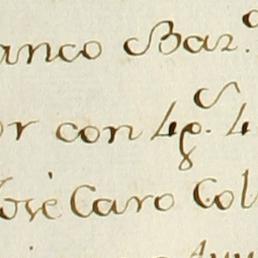 anco Bar.
or con 48. 4
José Caro Col